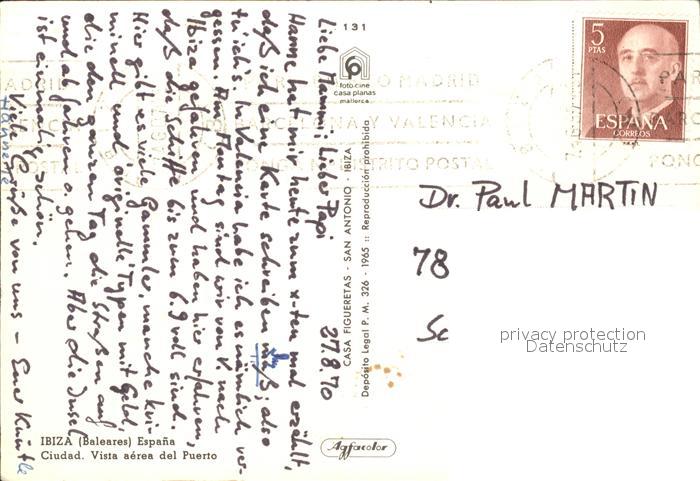 131
foto-cine
casa planas
mallorca
CASA FIGUERETAS - SAN ANTONIO - IBIZA
Depósito Legal P. M. 326 - 1965 :: Reproducción prohibida
27.8.70
Liebe Mammi, lieber Papi
Hanne hat mir heute zum x-ten mal erzählt,
daß ich eine Karte schreiben muß; also
tu ich's. In Valencia habe ich es nämlich ver-
gessen. Am Montag sind wir von V. nach
Ibiza gefahren und haben hier erfahren,
daß die Schiffe bis zum 6.9 voll sind.
Hier gibt es viele Gammler, manche kri-
minell und originelle Typen mit Geld,
die den ganzen Tag die Straßen auf
und ab fahren o. gehen. Aber die Insel
ist einmalig schön.
Viele Grüße von uns – Euer Künstle
Hannerse
IBIZA (Baleares) España
Ciudad. Vista aérea del Puerto
Agfacolor
5
PTAS
ESPAÑA
CORREOS
MADRID
BARCELONA Y VALENCIA
PONGA DISTRITO POSTAL
Dr. Paul MARTIN
78
Sc
privacy protection
Datenschutz